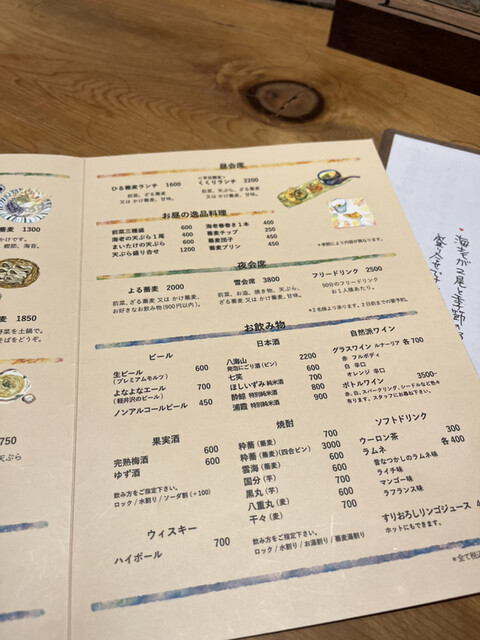 蕎麦 1300
かけです。
鰹節、海苔。
麦 1850
野菜を土鍋で。
そばをどうぞ。
750
天ぷら
昼会席
ひる蕎麦ランチ 1600
前菜、ざる蕎麦
又は かけ蕎麦、甘味。
くくりランチ 2200
前菜、天ぷら、ざる蕎麦
又は かけ蕎麦、甘味。
お昼の逸品料理
前菜三種盛 600
海老の天ぷら1尾 400
まいたけの天ぷら 600
天ぷら盛り合せ 1200
海老春巻き1本 400
蕎麦チップ 250
蕎麦団子 450
蕎麦プリン 450
*季節により内容が異なります。
夜会席
よる蕎麦 2000
前菜、ざる蕎麦 又は かけ蕎麦、
お好きなお飲み物(900円以内)。
雪会席 3800
前菜、お造、焼き物、天ぷら、
ざる蕎麦 又は かけ蕎麦、甘味。
フリードリンク 2500
90分のフリードリンク
お1人様あたり。
*2名様より承ります。2日前までの要予約。
お飲み物
ビール
生ビール 600
(プレミアムモルツ)
よなよなエール 700
(軽井沢のビール)
ノンアルコールビール 450
日本酒
八海山 2200
発泡にごり酒(ビン)
七笑 700
ほしいずみ 純米酒 700
酔鯨 特別純米酒 800
浦霞 特別純米酒 900
自然派ワイン
グラスワイン ルナーリア 各700
赤 フルボディ
白 辛口
オレンジ 辛口
ボトルワイン 3500-
赤、白、スパークリング、シードルなど色々
有ります。スタッフにお尋ね下さい。
果実酒
完熟梅酒 600
ゆず酒 600
飲み方をご指定下さい。
ロック / 水割り / ソーダ割(+100)
焼酎
粋蕎(蕎麦) 700
粋蕎(蕎麦)(四合ビン) 3000
雲海(蕎麦) 600
国分(芋) 700
黒丸(芋) 600
八重丸(麦) 700
千々(麦) 700
飲み方をご指定下さい。
ロック / 水割り / お湯割り / 蕎麦湯割り
ソフトドリンク
ウーロン茶 300
ラムネ 各400
昔なつかしのラムネ味
ライチ味
マンゴー味
ラフランス味
すりおろしリンゴジュース
ホットにもできます。
ウィスキー
ハイボール 700
*全て税込
海老が2尾と季節